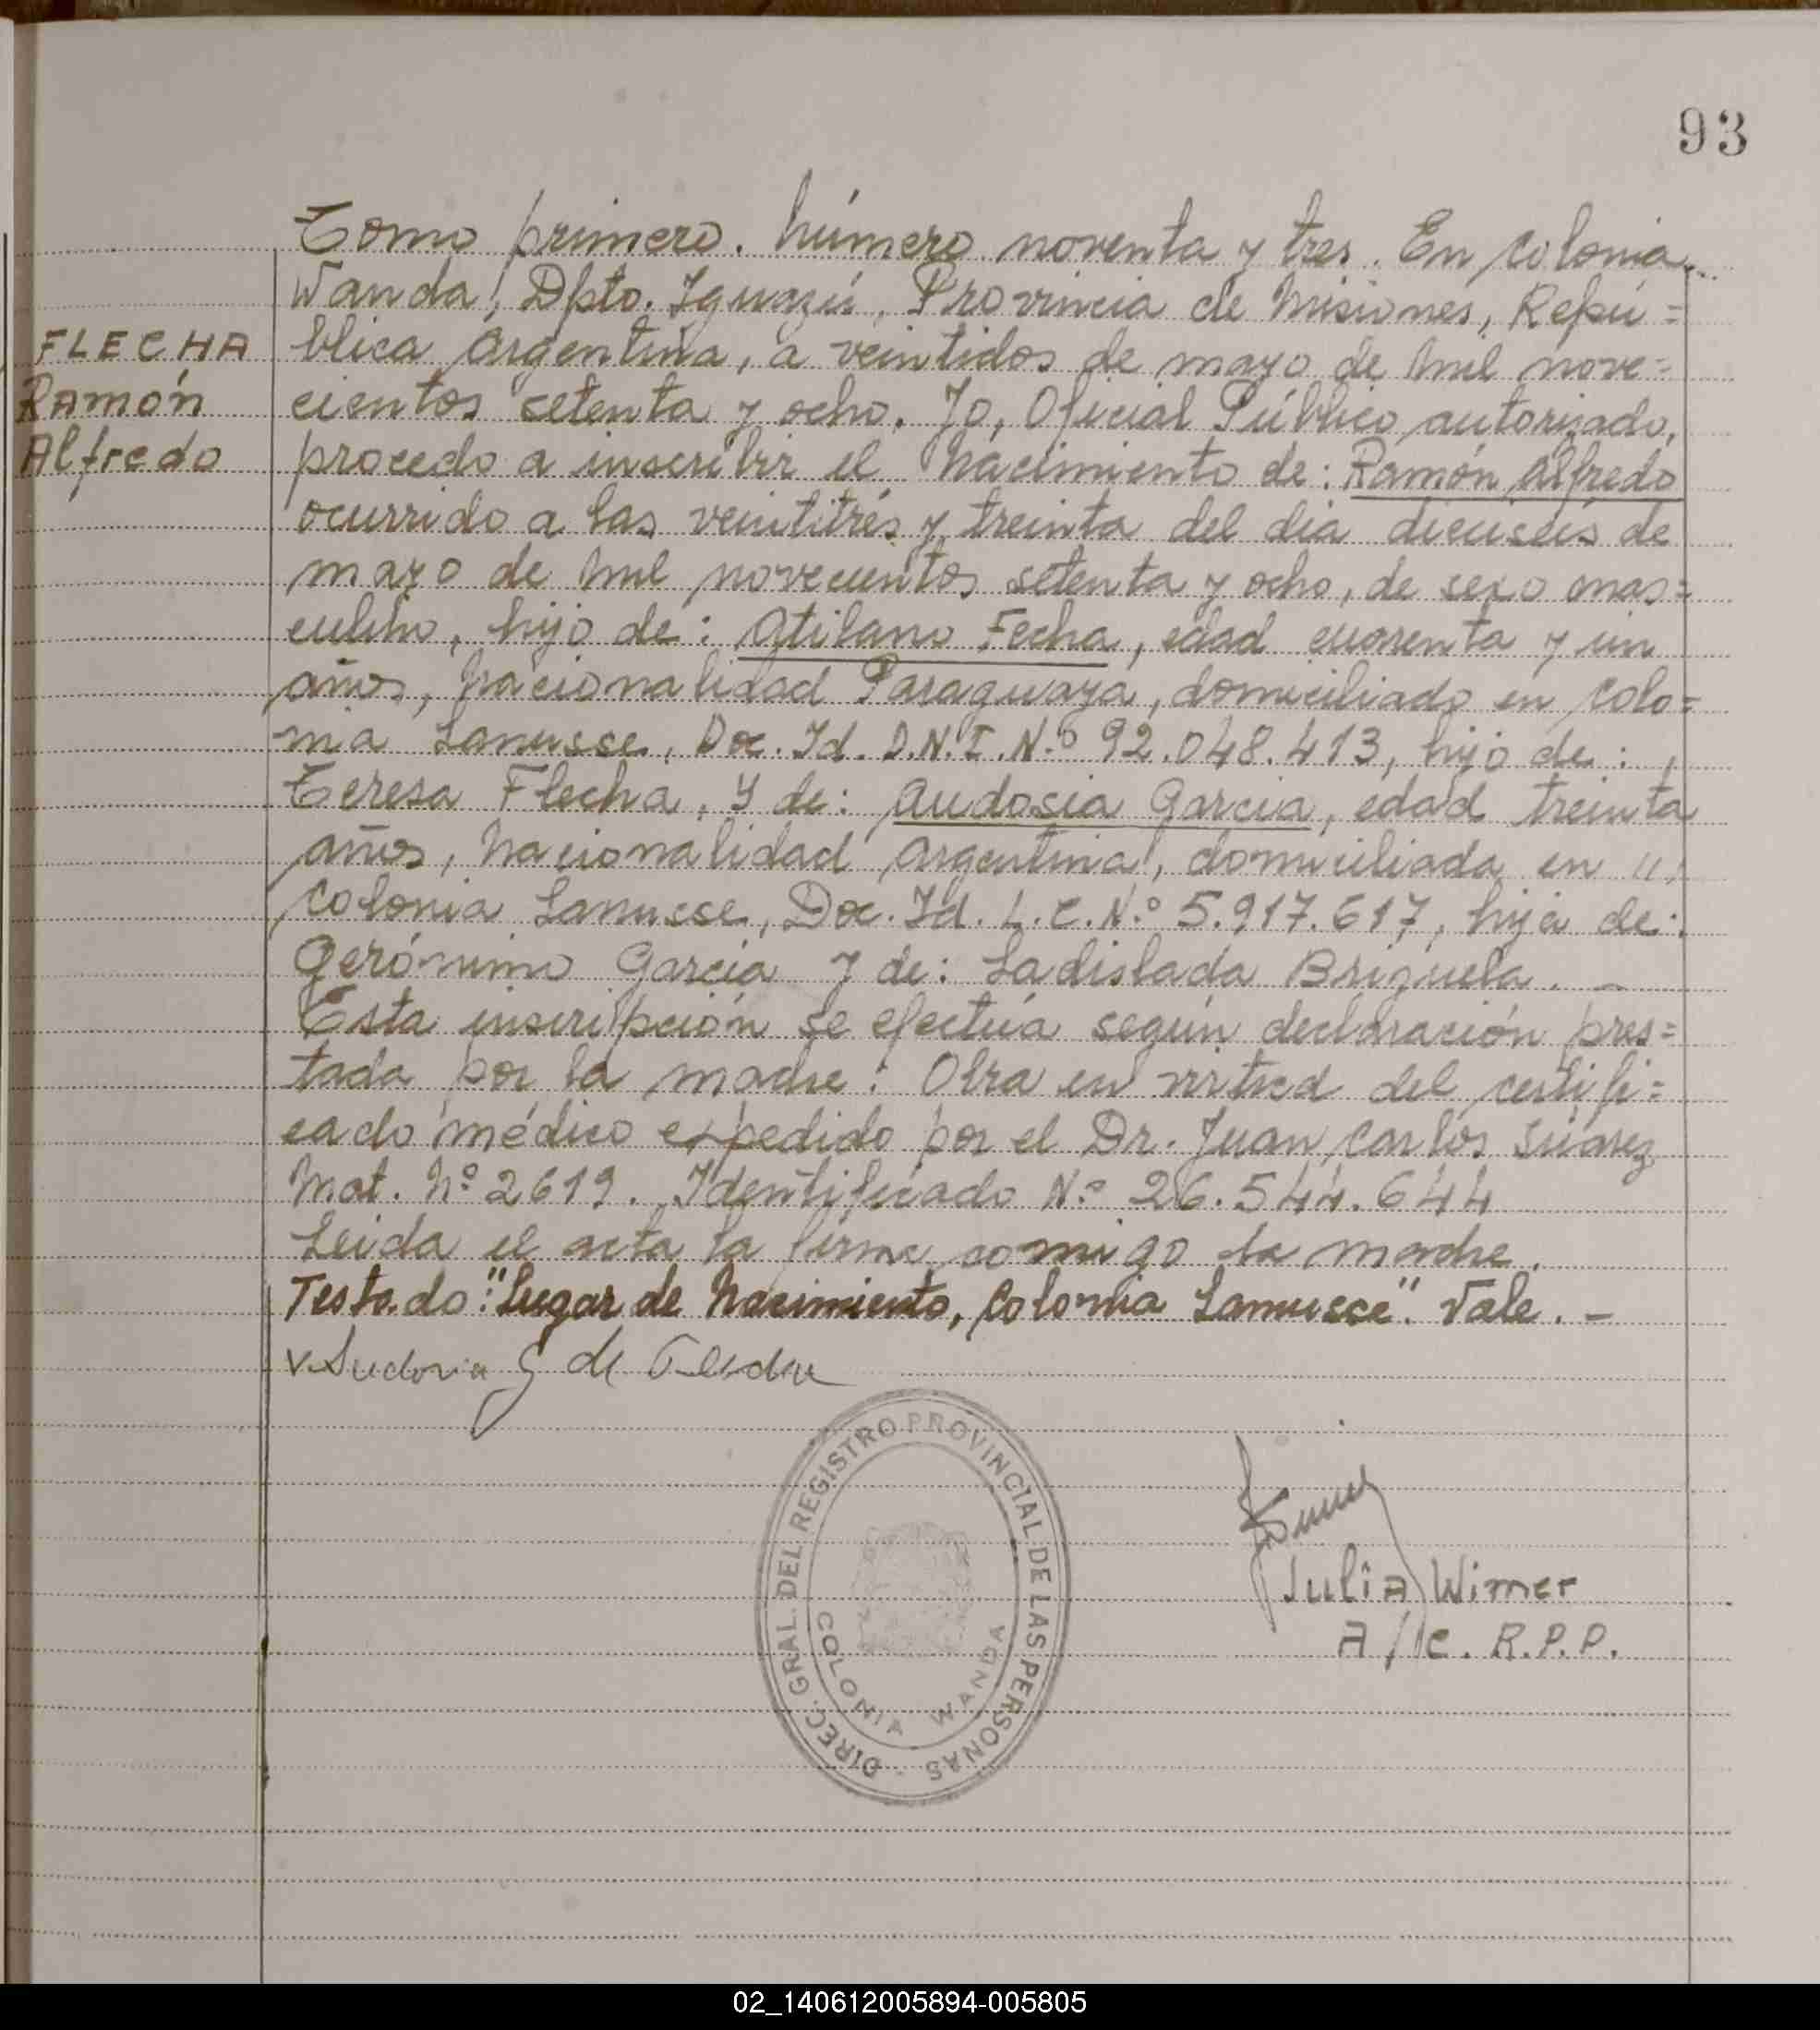 93
Tomo primero. Número noventa y tres. En Colonia
Wanda, Dpto. Iguazú, Provincia de Misiones, Repú=
FLECHA
Ramón
Alfredo
blica Argentina, a veintidos de mayo de mil nove=
cientos setenta y ocho. Yo, Oficial Público autorizado,
procedo a inscribir el Nacimiento de: Ramón Alfredo
ocurrido a las veintitrés y treinta del dia dieciseis de
mayo de mil novecientos setenta y ocho, de sexo mas=
culino, hijo de: Atilano Fecha, edad cuarenta y un
años, nacionalidad Paraguaya, domiciliado en Colo=
nia Lanusse, Doc. Id. D.N.I. N.º 92.048.413, hijo de:
Teresa Flecha, y de: Audosia Garcia, edad treinta
años, nacionalidad Argentina, domiciliada en "
Colonia Lanusse, Doc. Id. L.C. N.º 5.917.617, hija de:
Gerónimo Garcia y de: Ladislada Brizuela. _
Esta inscripción se efectúa según declaración pres=
tada por la madre: Obra en virtud del certifi=
cado médico expedido por el Dr. Juan Carlos Suárez
Mat. Nº 2619. Identificado N.º 26.544.644
Leida el acta la firma comigo la madre.
Testado: "Lugar de Nacimiento, Colonia Lanusse". Vale. _
G de
DIREC. GRAL. DEL REGISTRO PROVINCIAL DE LAS PERSONAS -
COLONIA WANDA
Julia Wimer
A/C. R.P.P.
02_140612005894-005805